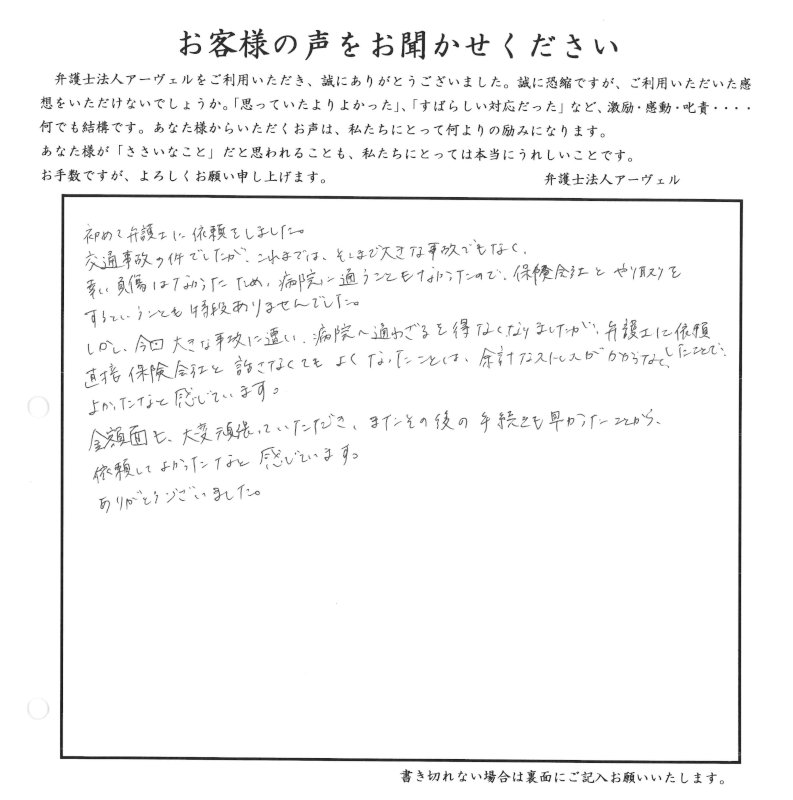 お客様の声をお聞かせください
弁護士法人アーヴェルをご利用いただき、誠にありがとうございました。誠に恐縮ですが、ご利用いただいた感
想をいただけないでしょうか。「思っていたよりよかった」、「すばらしい対応だった」など、激励・感動・叱責・・・・
何でも結構です。あなた様からいただくお声は、私たちにとって何よりの励みになります。
あなた様が「ささいなこと」だと思われることも、私たちにとっては本当にうれしいことです。
お手数ですが、よろしくお願い申し上げます。 弁護士法人アーヴェル
初めて弁護士に依頼をしました。
交通事故の件でしたが、これまでは、そこまで大きな事故でもなく、
幸い負傷はなかったため、病院に通うこともなかったので、保険会社とやり取りを
するということも特段ありませんでした。
しかし、今回大きな事故に遭い、病院へ通わざるを得なくなりましたが、弁護士に依頼
したことで、
直接保険会社と話さなくてもよくなったことは、余計なストレスがかからなく、
よかったなと感じています。
金額面も、大変頑張っていただき、またその後の手続きも早かったことから、
依頼してよかったなと感じています。
ありがとうございました。
書き切れない場合は裏面にご記入お願いいたします。